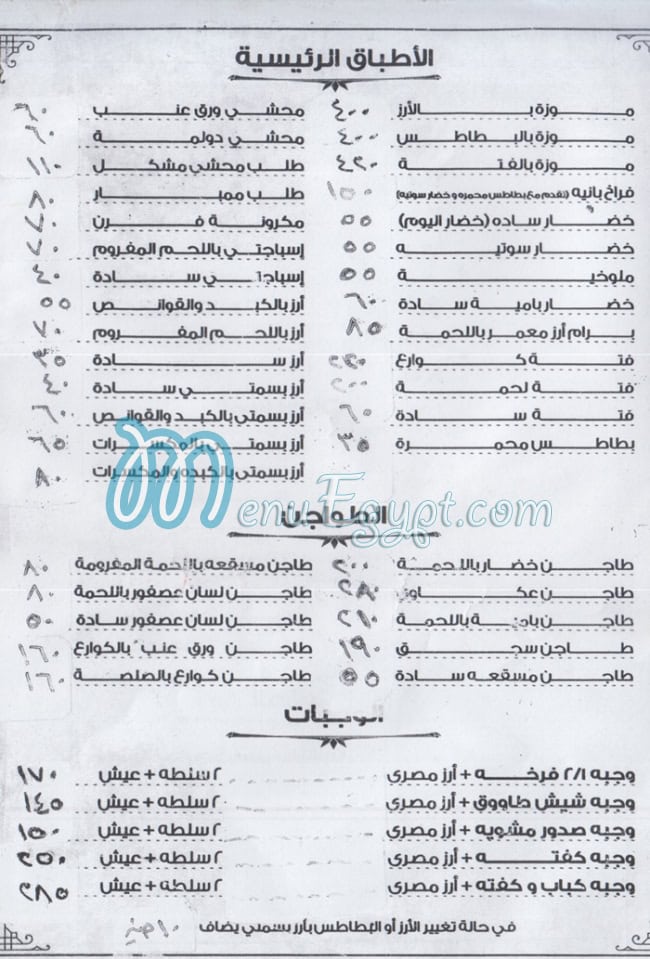 الأطباق الرئيسية
موزة بالأرز ٤٠٠
موزة بالبطاطس ٤٠٠
موزة بالفتة ٤٢٠
فراخ بانيه (تقدم مع بطاطس محمره و خضار سوتيه) ١٥٠
خضار ساده (خضار اليوم) ٥٥
خضار سوتيه ٥٥
ملوخية ٥٥
خضار بامية سادة ٦٠
برام أرز معمر باللحمة ٨٥
فتة كوارع ٢٢٠
فتة لحمة
فتة سادة ٦٠
بطاطس محمرة ٣٥
محشي ورق عنب ٦٠
محشي دولمة ٦٠
طلب محشي مشكل ١١٠
طلب ممبار ٨٠
مكرونة فرن ٧٠
إسباجتي باللحم المفروم ٧٠
إسباجتي سادة ٤٠
أرز بالكبد والقوانص ٥٥
أرز باللحم المفروم ٧٠
أرز سادة ٣٥
أرز بسمتي سادة ٤٠
أرز بسمتي بالكبد والقوانص ٦٠
أرز بسمتي بالمكسرات ٦٥
أرز بسمتي بالكبده والمكسرات ٨٠
MenuEgypt.com
الطواجن
طاجن خضار باللحمة ٢٠٠
طاجن عكاوي ٢٨٠
طاجن بامية باللحمة ٢١٠
طاجن سجق ١٩٠
طاجن مسقعه سادة ٥٥
طاجن مسقعه باللحمة المفرومة ٨٠
طاجن لسان عصفور باللحمة ٨٠
طاجن لسان عصفور سادة ٥٠
طاجن ورق عنب بالكوارع ١٦٠
طاجن كوارع بالصلصة ١٦٠
الوجبات
وجبه ٢/١ فرخه + أرز مصرى ٢ سلطه + عيش ١٧٠
وجبه شيش طاووق + أرز مصرى ٢ سلطه + عيش ١٤٥
وجبه صدور مشويه + أرز مصرى ٢ سلطه + عيش ١٥٠
وجبه كفته + أرز مصرى ٢ سلطه + عيش ٢٥٠
وجبه كباب و كفته + أرز مصرى ٢ سلطه + عيش ٢٨٥
في حالة تغيير الأرز أو البطاطس بأرز بسمتي يضاف ١٠ جنيه